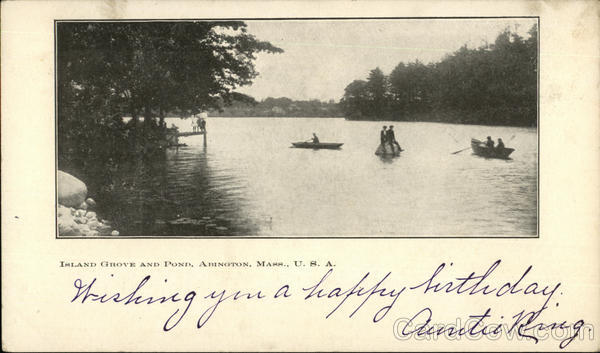 Island Grove and Pond, Abington, Mass., U. S. A.
Wishing you a happy birthday.
Auntie King
CardCow.com